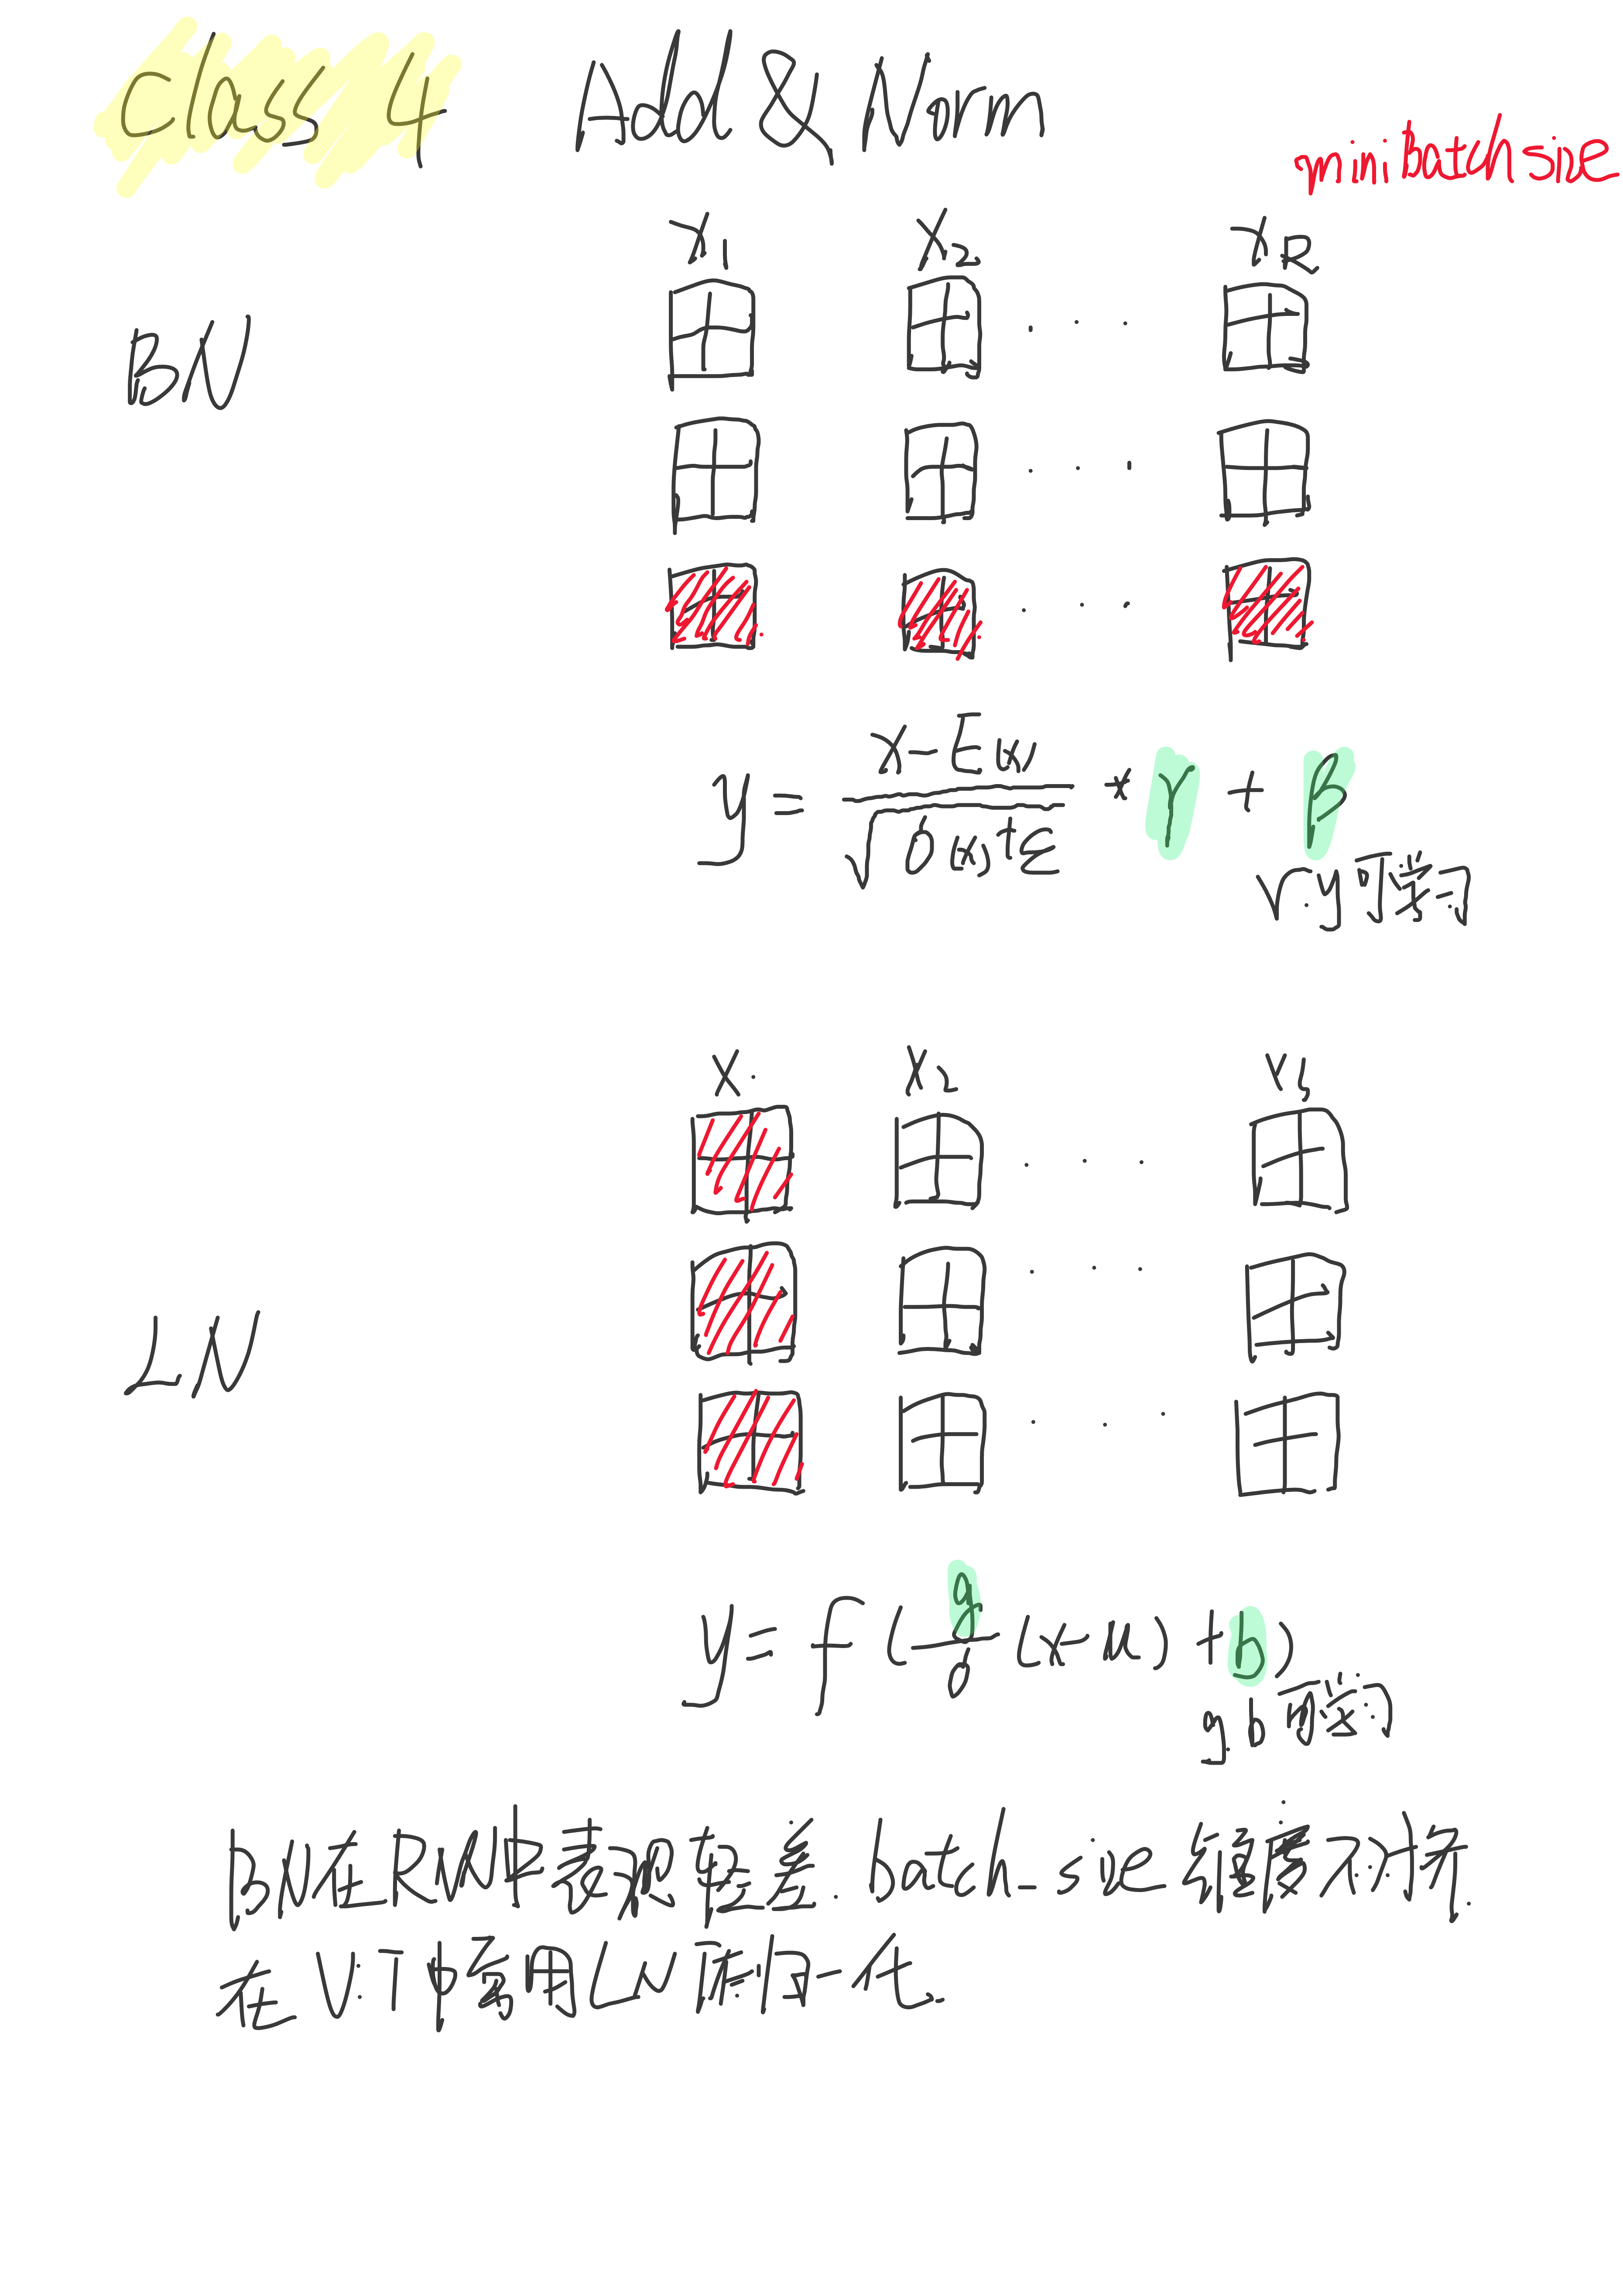 Class 4 Add & Norm
mini Batch size
x₁ x₂ x_R
BN
y = \frac{x - E(x)}{\sqrt{σ(x) + ε}} * γ + β
γ.y可学习
x. x₂
LN
y = f ( \frac{g}{σ} (x - μ) + b )
g. b 可学习
BN在RNN中表现较差. batch_size维度不对齐.
在ViT中套用LN 所有归一化.